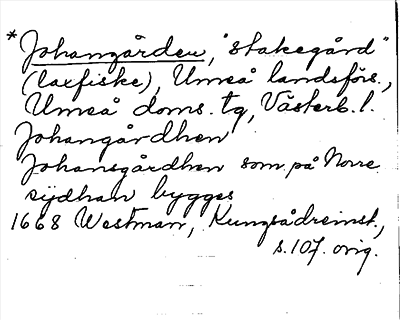 *Johangården, "stakegård"
(laxfiske), Umeå landsförs.,
Umeå doms. tg, Västerb. l.
Johangårdhen
Johansgårdhen som på Norre
sijdhan bygges
1668 Westman, Kungsådreinst.,
s. 107. orig.